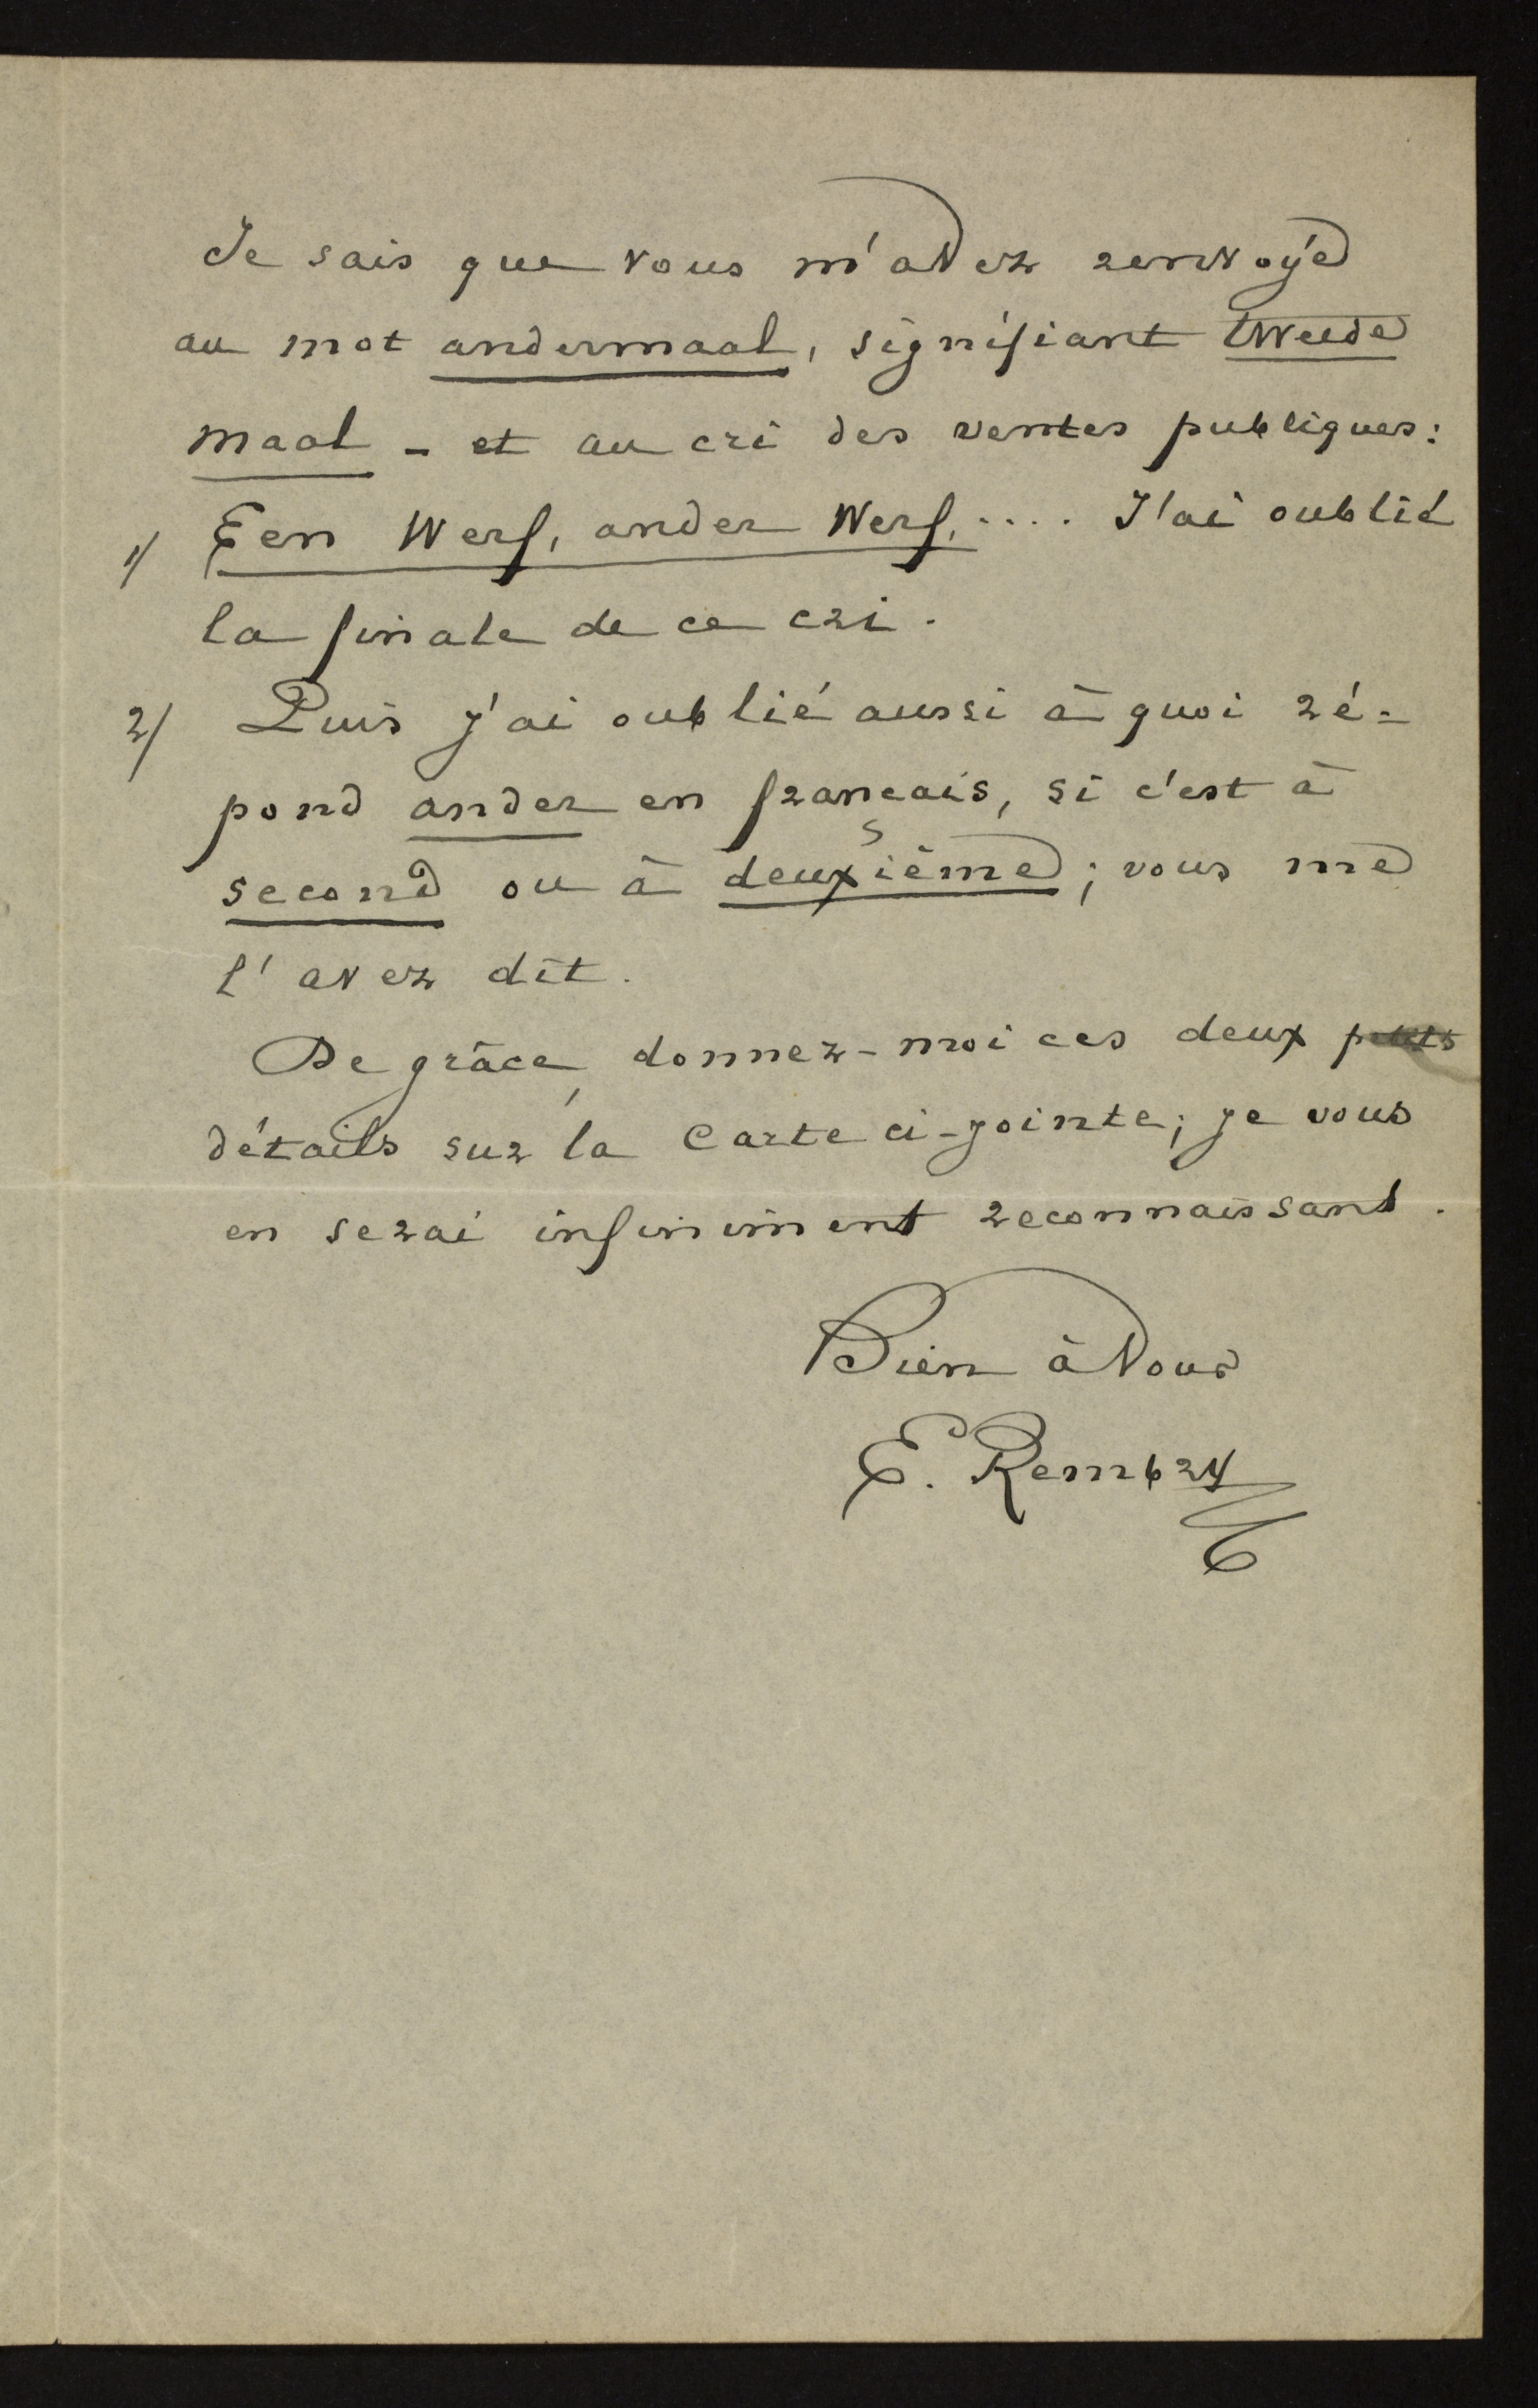 Je sais que vous m'avez renvoyé
au mot andermaal, signifiant tweede
maal - et au cri des ventes publiques:
1/ Een Werf, ander Werf, .... J'ai oublié
la finale de ce cri.
2/ Puis j'ai oublié aussi à quoi ré-
pond ander en français, si c'est à
second ou à deuxième; vous me
l'avez dit.
De grâce, donnez-moi ces deux
détails sur la Carte ci-jointe; je vous
en serai infiniment reconnaissant.
Bien à Vous
E. Rembry